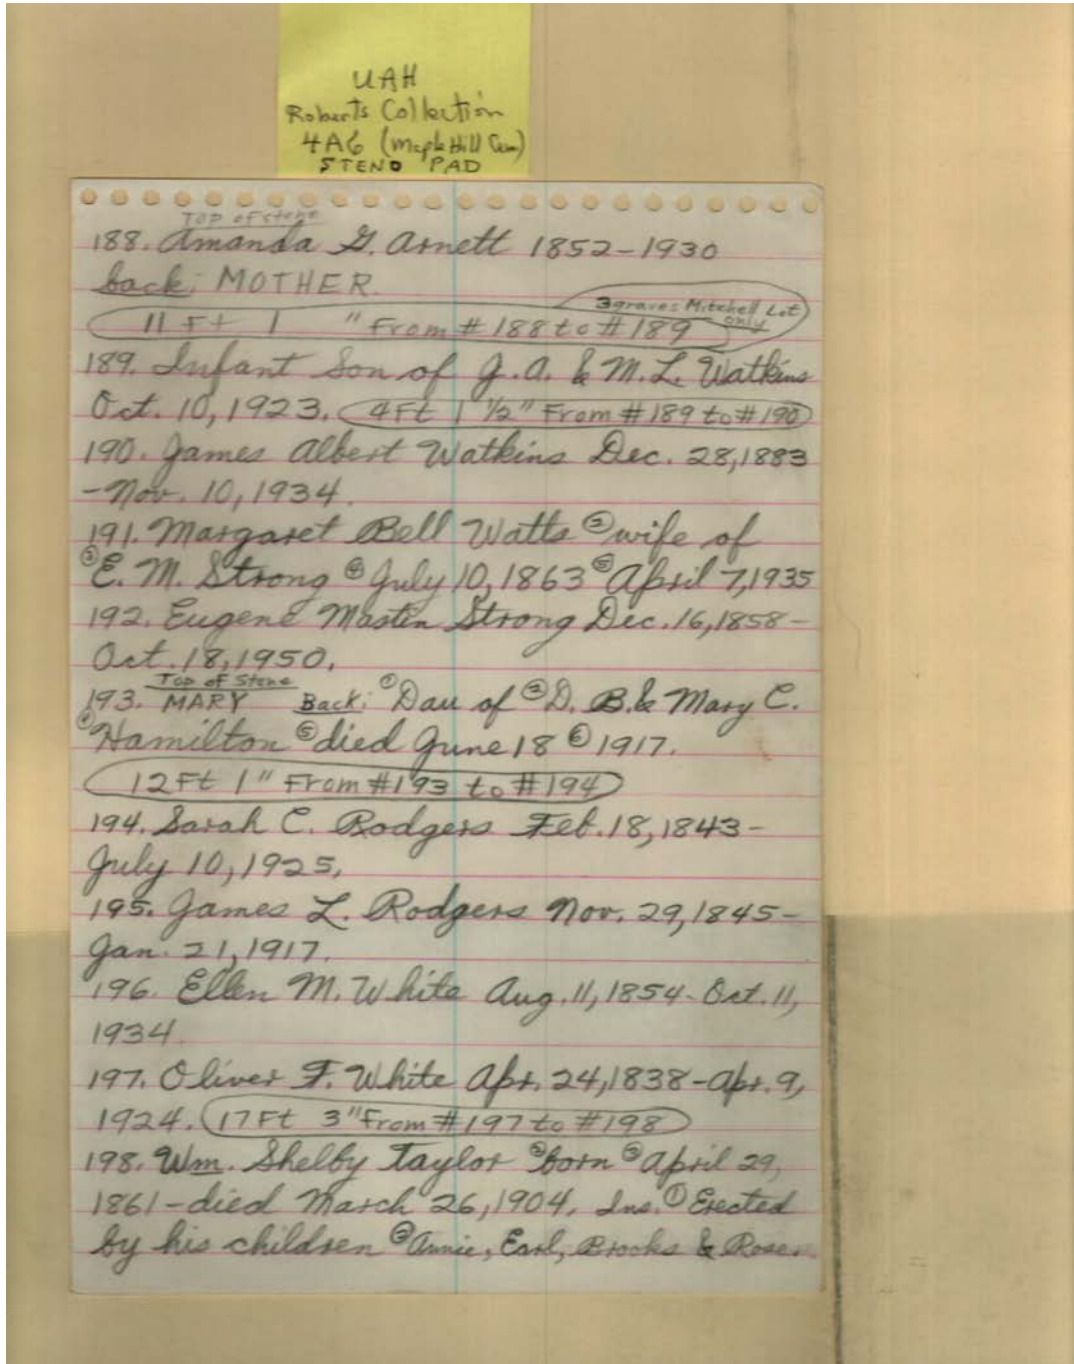 UAH
Roberts Collection
4A6 (Maple Hill Cem)
STENO PAD
Top of stone
188. Amanda G. Arnett 1852-1930
back: MOTHER.
3 graves Mitchell Lot
only
11 Ft 1 " From # 188 to # 189
189. Infant Son of J. A. & M. L. Watkins
Oct. 10, 1923. 4Ft 1 1/2" From # 189 to # 190
190. James Albert Watkins Dec. 28, 1883
-Nov. 10, 1934.
191. Margaret Bell Watts ② wife of
③ E. M. Strong ④ July 10, 1863 ⑤ April 7, 1935
192. Eugene Mastin Strong Dec. 16, 1858-
Oct. 18, 1950.
Top of Stone
193. MARY Back: ① Dau of ② D. B. & Mary C.
④ Hamilton ⑤ died June 18 ⑥ 1917.
12Ft 1" From #193 to #194
194. Sarah C. Rodgers Feb. 18, 1843-
July 10, 1925.
195. James L. Rodgers Nov. 29, 1845-
Jan. 21, 1917.
196. Ellen M. White Aug. 11, 1854- Oct. 11,
1934.
197. Oliver F. White Apr. 24, 1838-Apr. 9,
1924. 17Ft 3" From #197 to #198
198. Wm. Shelby Taylor ② born ③ April 29,
1861-died March 26, 1904. Ins. ① Erected
by his children ② Annie, Earl, Brooks &